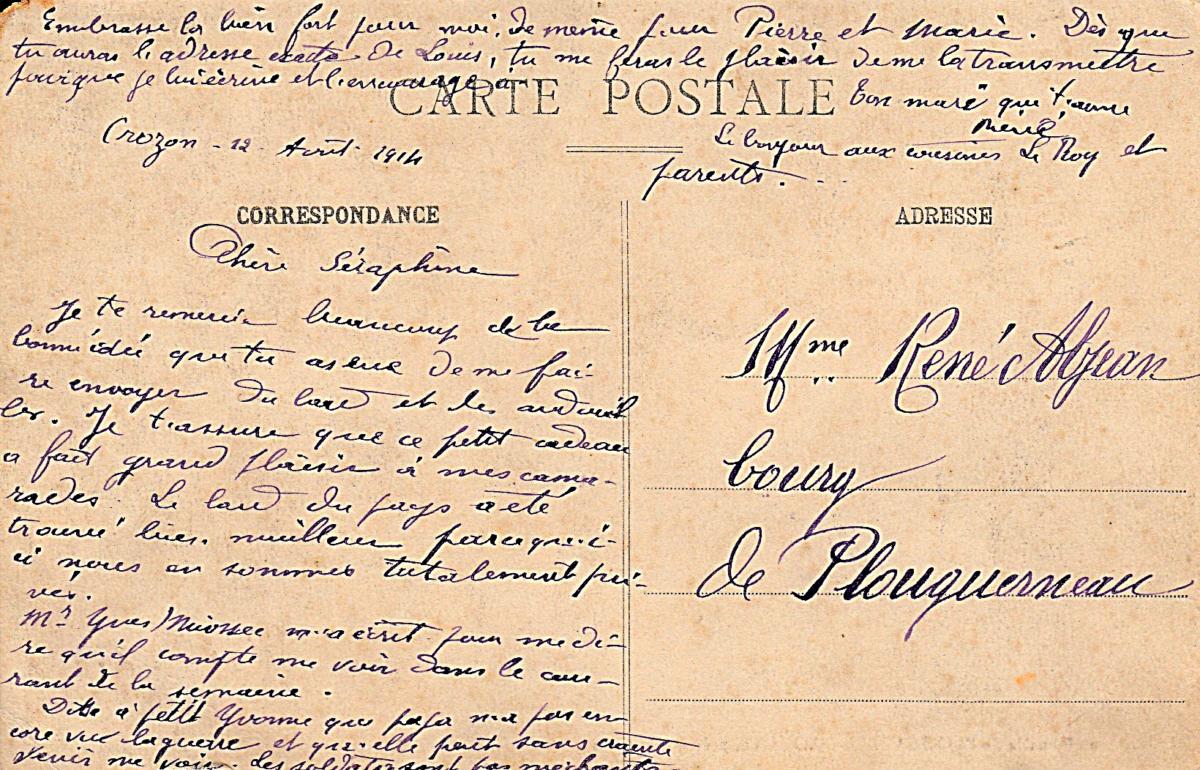 Embrasse la bien fort pour moi, de même pour Pierre et Marie. Dès que
tu auras l'adresse exacte de Louis, tu me feras le plaisir de me la transmettre
pour que je lui écrive et l'encourage
CARTE POSTALE
Ton mari qui t'aime
René
Le bonjour aux cousines Le Roy et
parents...
Crozon - 12 Août 1914
CORRESPONDANCE
Chère Séraphine
Je te remercie beaucoup de la
bonne idée que tu as eue de me fai-
re envoyer du lard et des andouil
les. Je t'assure que ce petit cadeau
a fait grand plaisir à mes cama-
rades. Le lard du pays a été
trouvé bien meilleur parce qu'i-
ci nous en sommes totalement pri-
vés.
Mr Yves Miossec m'a écrit pour me di-
re qu'il compte me voir dans le cou-
rant de la semaine.
Dites à petit Yvonne que papa n'a pas en
core vu la guerre et qu'elle peut sans crainte
venir me voir. Les soldats sont pas méchants
ADRESSE
Mme René Abjean
bourg
de Plouguerneau